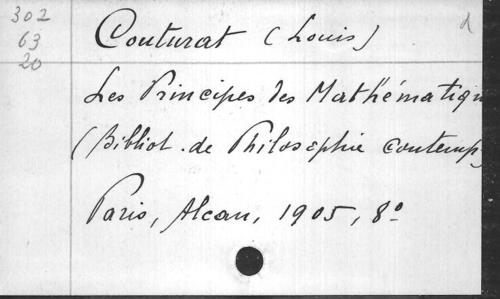 302
63
20
Couturat (Louis)
d
Les Principes des Mathématiqu
(Bibliot. de Philosophie contemp
Paris, Alcan, 1905, 8º